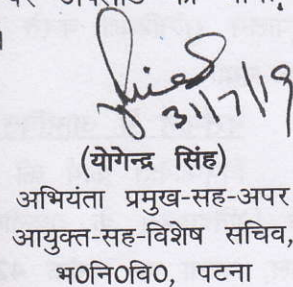 31/7/19
(योगेन्द्र सिंह)
अभियंता प्रमुख-सह-अपर
आयुक्त-सह-विशेष सचिव,
भ0नि0वि0, पटना